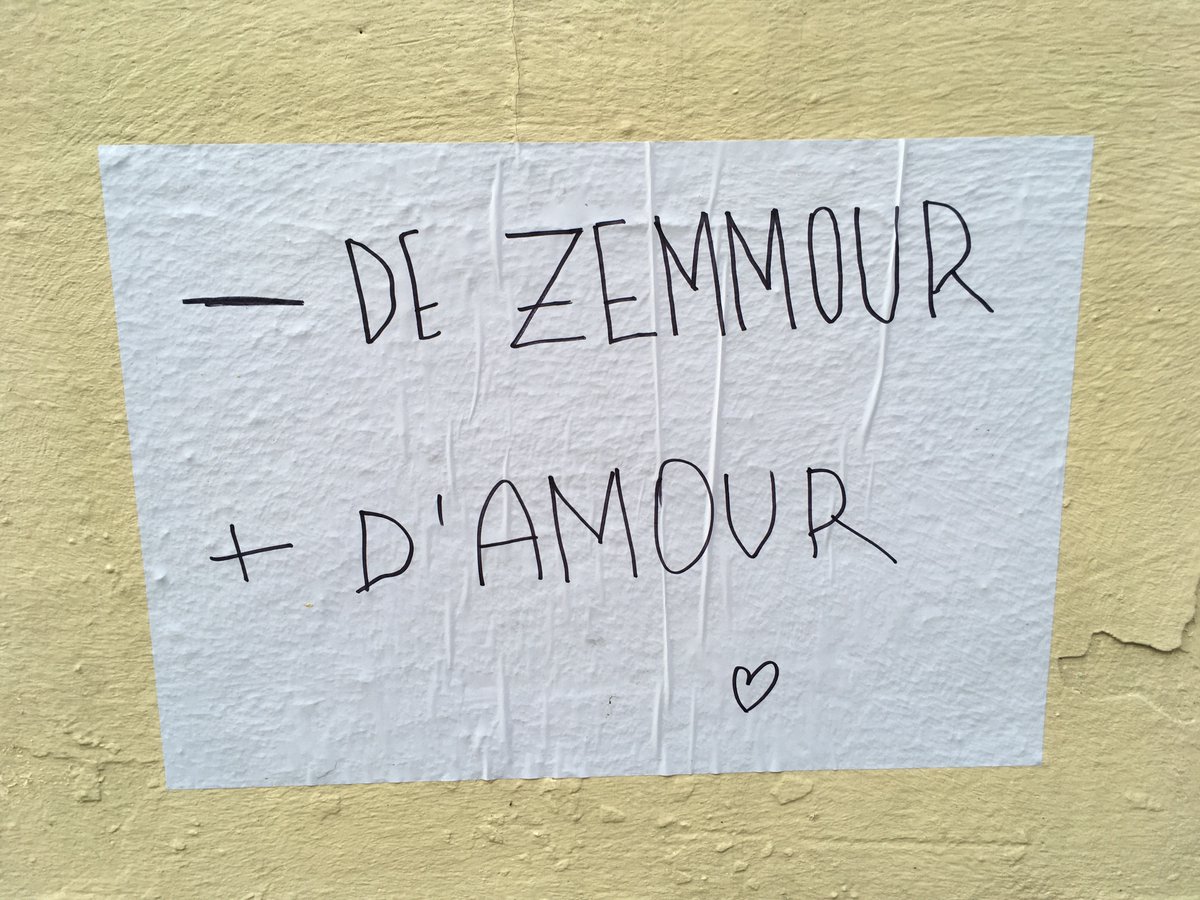 — DE ZEMMOUR
+ D'AMOUR
♡